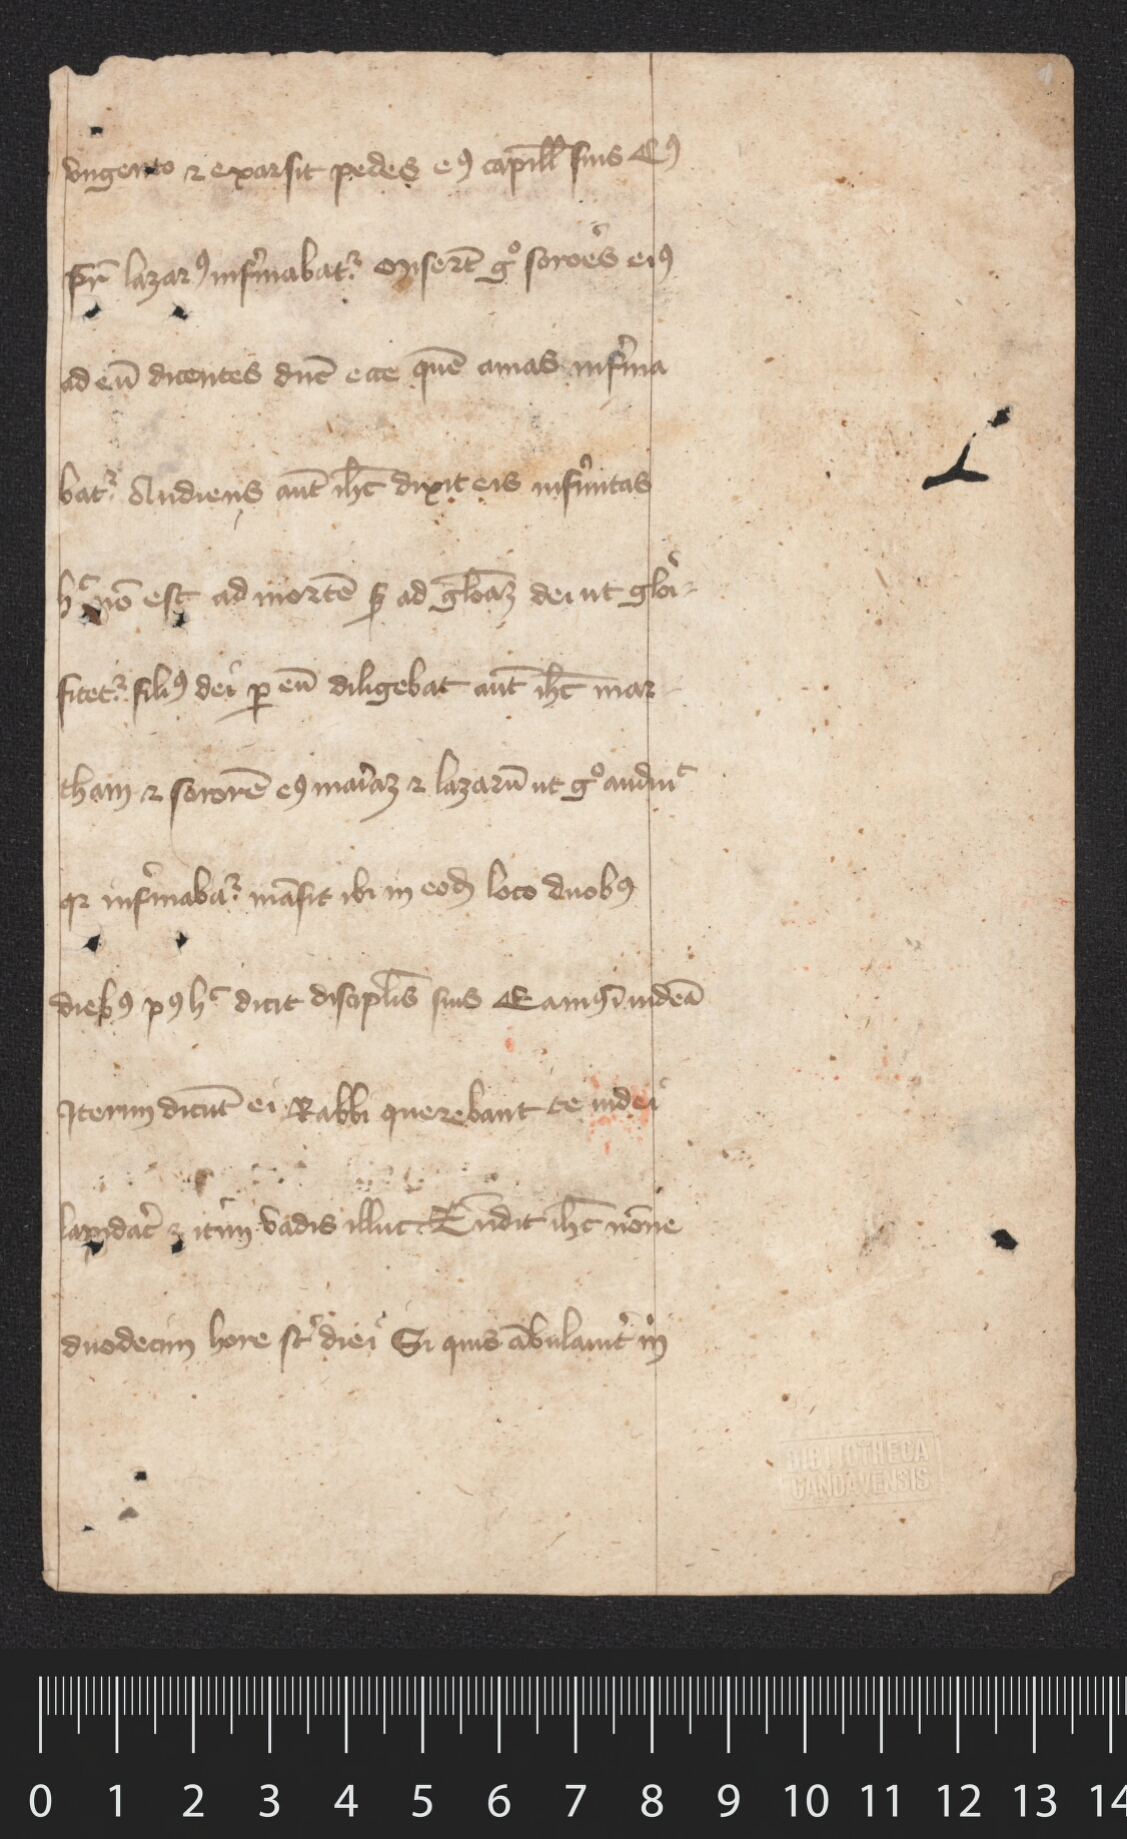 vngento ⁊ exarsit pedes eꝰ capill̄ suis Cꝰ
fr̄ lazarꝰ infirmabatᷣ miser̄t gͦ soroes eiꝰ
ad eū dicentes dn̄e ecce quē amas infirma
batᷣ Audiens aūt ih̄c dixit eis infirmitas
hᶜ nō est ad mortē sꝫ ad gl̄oaꝫ dei ut glori
ficetᷣ filiꝰ dei ꝑ eū diligebat aūt ih̄c mar
tham ⁊ sororē eꝰ mariaꝫ ⁊ lazarū ut gͦ audiuᵗ
qꝛ infirmabaᷣ māsit ibi in eod̄ loco duobꝰ
diebꝰ pꝰ hᶜ dicit discipl̄is suis Eamꝰ ī iudeā
Iterum dicūt ei Rabbi querebant te iudei
lapidar̄ ⁊ iterum vadis illuc Rn̄dit ih̄c nōne
duodecim hore st̄ diei Si quis ābulauit̉ in
BIBLIOTHECA
GANDAVENSIS
0 1 2 3 4 5 6 7 8 9 10 11 12 13 14